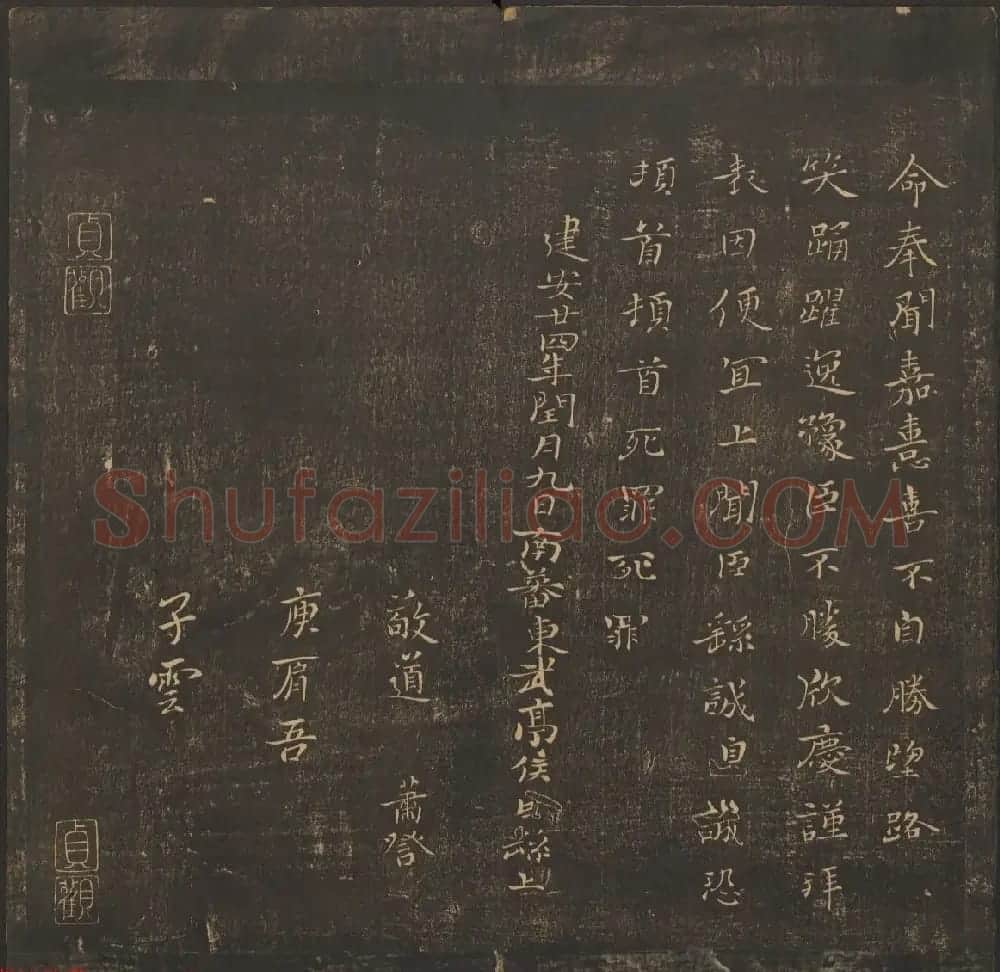 命奉聞嘉憙喜不自勝望路、
笑踊躍逸豫臣不勝欣慶謹拜
表因便宜上聞臣繇誠誠恐
頓首頓首死罪死罪
建安廿四年閏月九日南蕃東武亭侯臣繇上
敬道
蕭
庾肩吾
子雲
貞觀
貞觀
Shufaziliao.COM